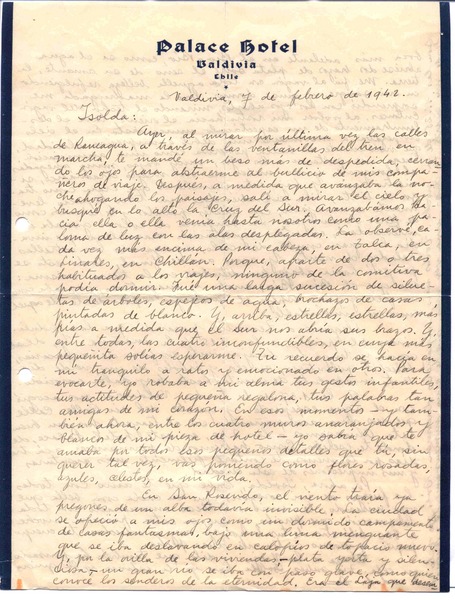 Palace Hotel
Valdivia
Chile
Valdivia, 7 de febrero de 1942.
Isolda:
Ayer, al mirar por última vez las calles
de Rancagua, a través de las ventanillas del tren en
marcha, te mandé un beso más de despedida, cerran-
do los ojos para abstraerme al bullicio de mis compa-
ñeros de viaje. Después, a medida que avanzaba la no-
che ahogando los paisajes, salí a mirar el cielo y
busqué en lo alto la Cruz del Sur. Avanzábamos ha-
cia ella o ella venía hasta nosotros como una pa-
loma de luz con las alas desplegadas. La observé, ca-
da vez más encima de mi cabeza, en Talca, en
Linares, en Chillán. Porque, aparte de dos o tres
habituados a los viajes, ninguno de la comitiva
podía dormir. Fué una larga sucesión de silue-
tas de árboles, espejos de agua, brochazos de casas
pintadas de blanco. Y, arriba, estrellas, estrellas, más
frías a medida que el Sur nos abría sus brazos. Y,
entre todas, las cuatro inconfundibles, en cuya más
pequeñita solías esperarme. Tu recuerdo se hacía en
mí tranquilo a ratos y emocionado en otros. Para
evocarte, yo robaba a mi alma tus gestos infantiles,
tus actitudes de pequeña regalona, tus palabras tan
amigas de mi corazón. En esos momentos - y tam-
bién ahora, entre los cuatro muros anaranjados y
blancos de mi pieza de hotel - yo sabía que te
amaba por todos esos pequeños detalles que tú, sin
querer tal vez, vas poniendo como flores rosadas,
azules, celestes, en mi vida.
En San Rosendo, el viento traía ya
pregones de un alba todavía invisible. La ciudad
se ofreció a mis ojos como un dormido campamento
de casas fantasmas, bajo una luna menguante
que se iba deslavando en calofríos de topacio nuevo.
Y, por la orilla de las viviendas - plata yerta y silen-
ciosa - un gran río se iba con paso grave, como quien
conoce los senderos de la eternidad. Era el Laja que